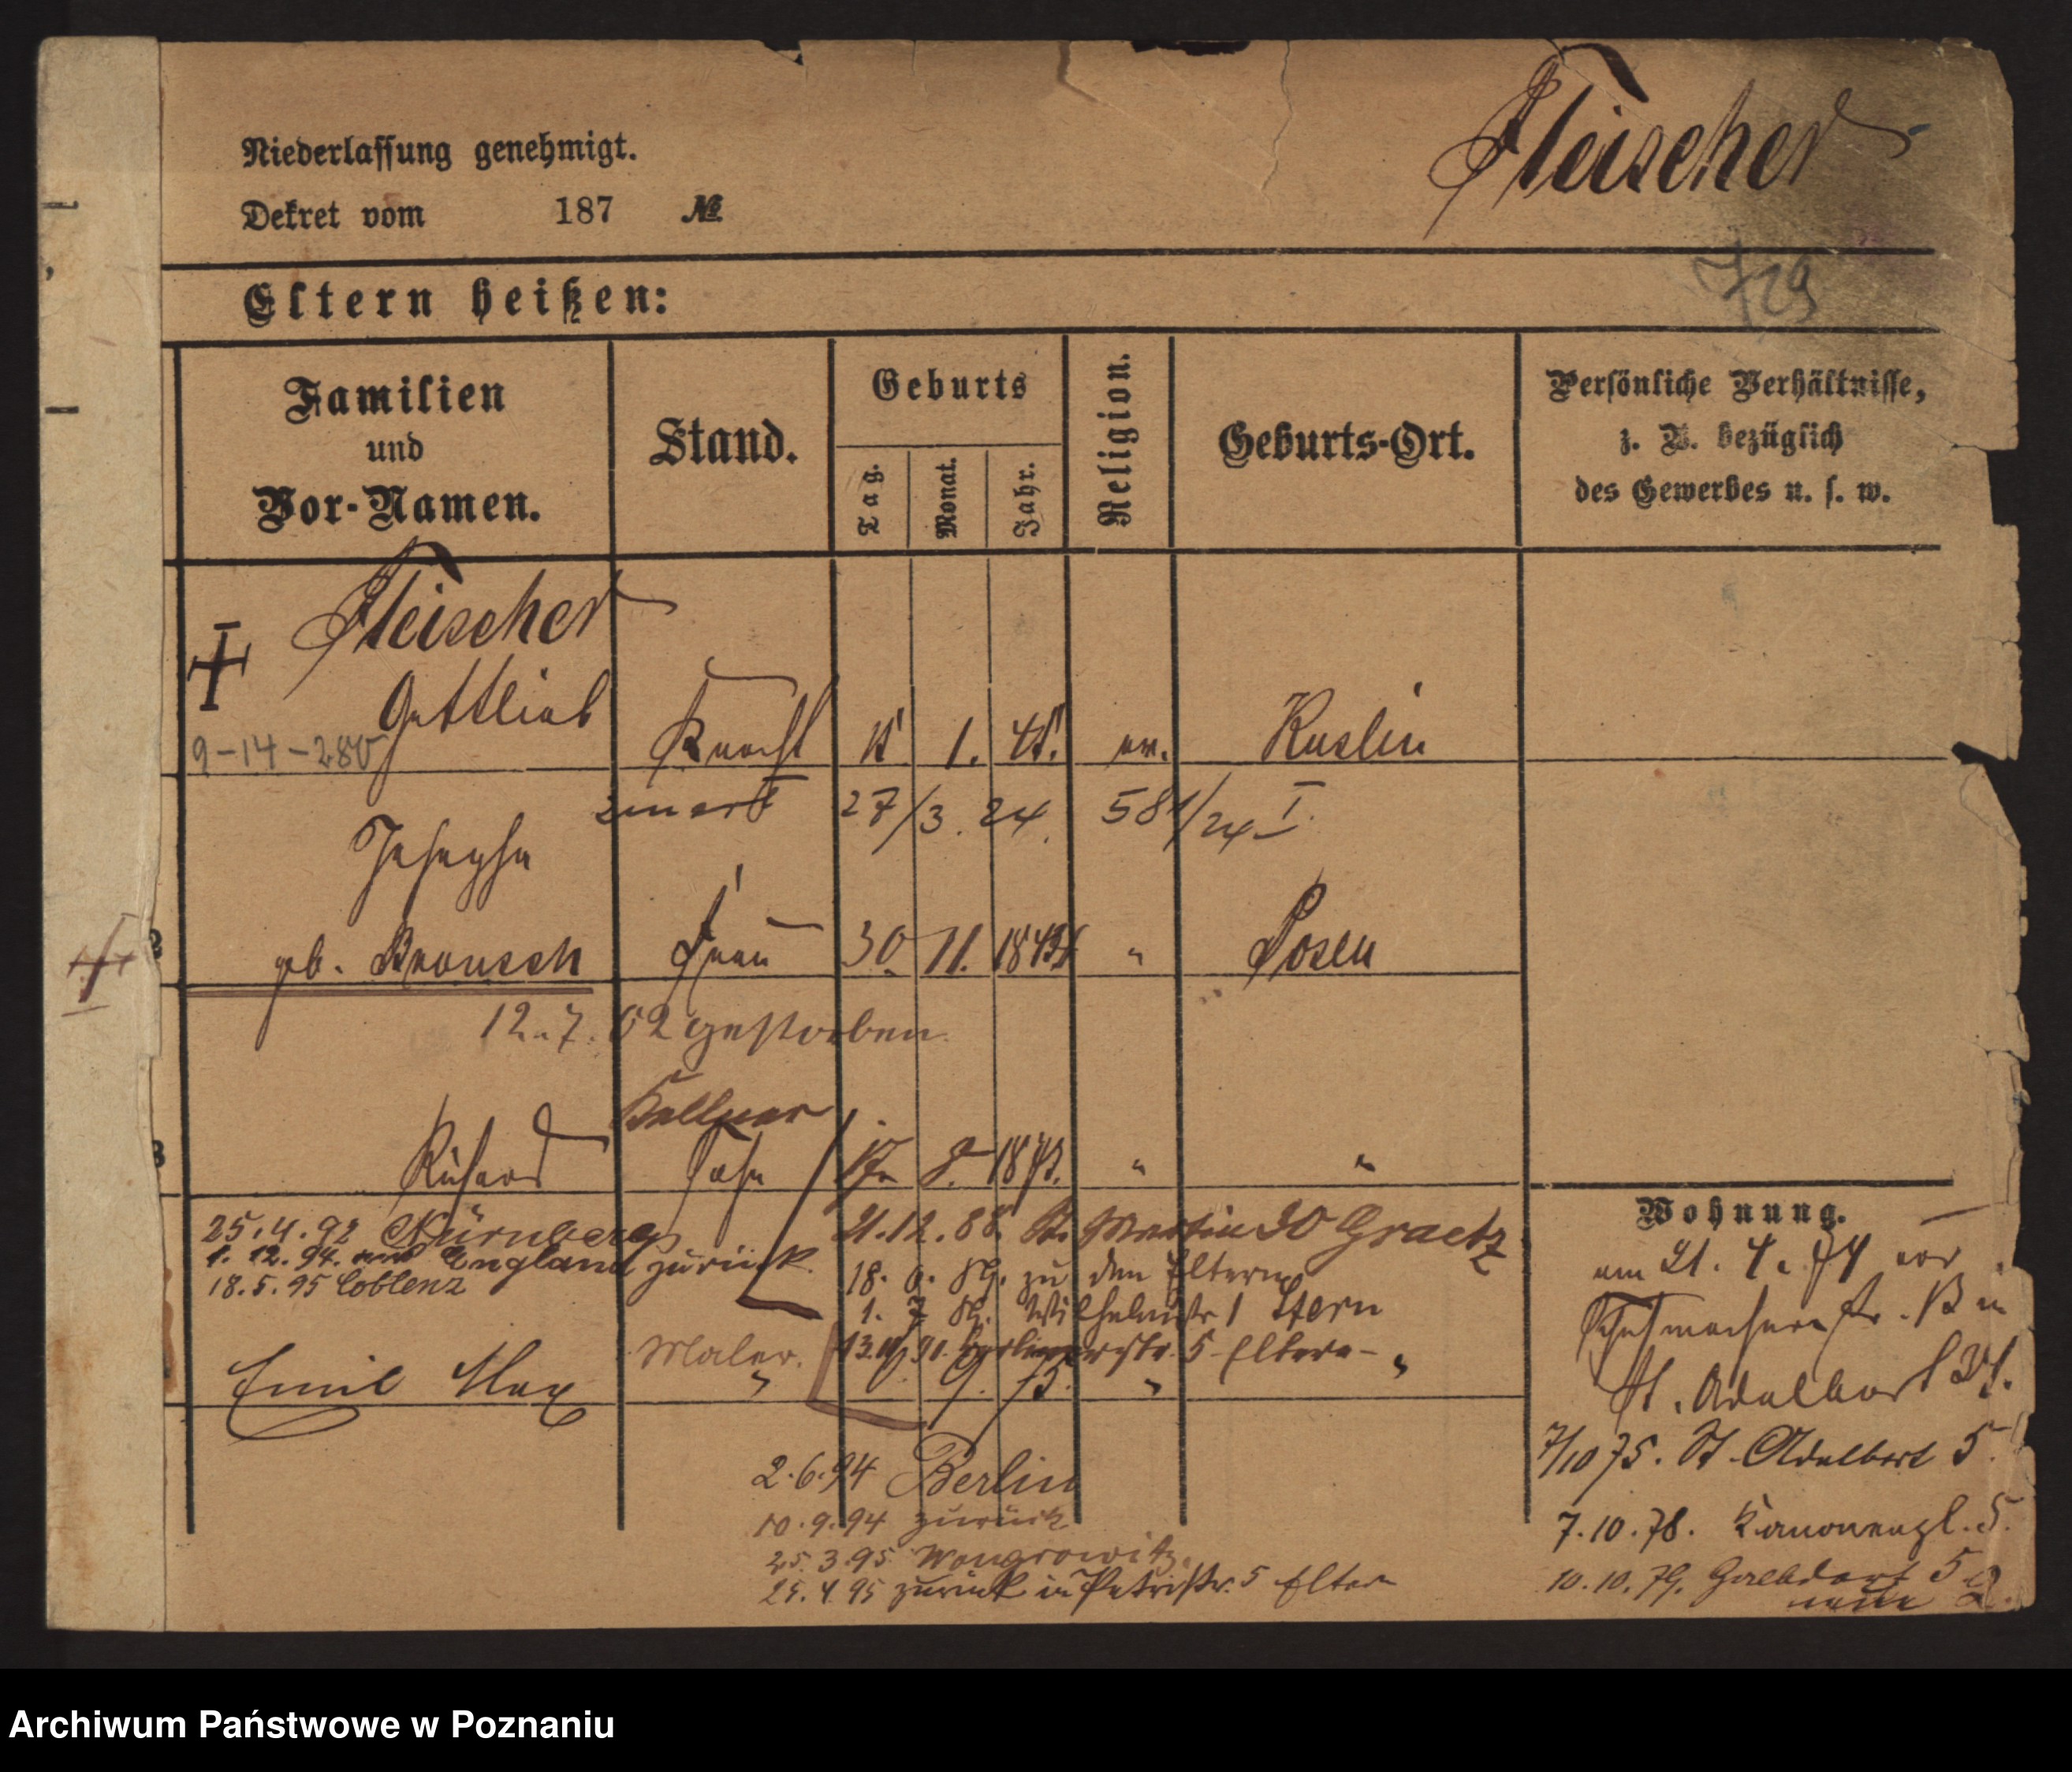 Niederlassung genehmigt.
Dekret vom 187 №
Fleischer
Eltern heißen:
Familien und Vor-Namen.
Stand.
Geburts
Tag.
Monat.
Jahr.
Religion.
Geburts-Ort.
Persönliche Verhältnisse,
z. B. bezüglich
des Gewerbes u. s. w.
Fleischer
Gottlieb Knecht 1. ev. Kuslin
9-14-280
zmarł 27/3. 24. 581/24 I.
Josepha
geb. Frau 30. 11. " Posen
12.7.02 gestorben
Kellner
Richard Sohn " "
25.4.92 Nürnberg
1.12.94. aus England zurück.
18.5.95 Coblenz
21.12.88. St. Martin Graetz
18. 6. 89. zu den Eltern
1. 7 89. Wilhelmstr 1 Stern
Maler.
90. 5 Eltern
Emil Max " 9. 75. " "
2.6.94 Berlin
10.9.94 zurück
25.3.95 Wongrowitz
25.4.95 zurück in Petristr. 5 Eltern
Wohnung.
am 21. 4. 74 vor
St. Adalbert
7/10 75. St. Adalbert 5.
7.10.78. Kanonenpl. 5.
10.10.79.
Archiwum Państwowe w Poznaniu